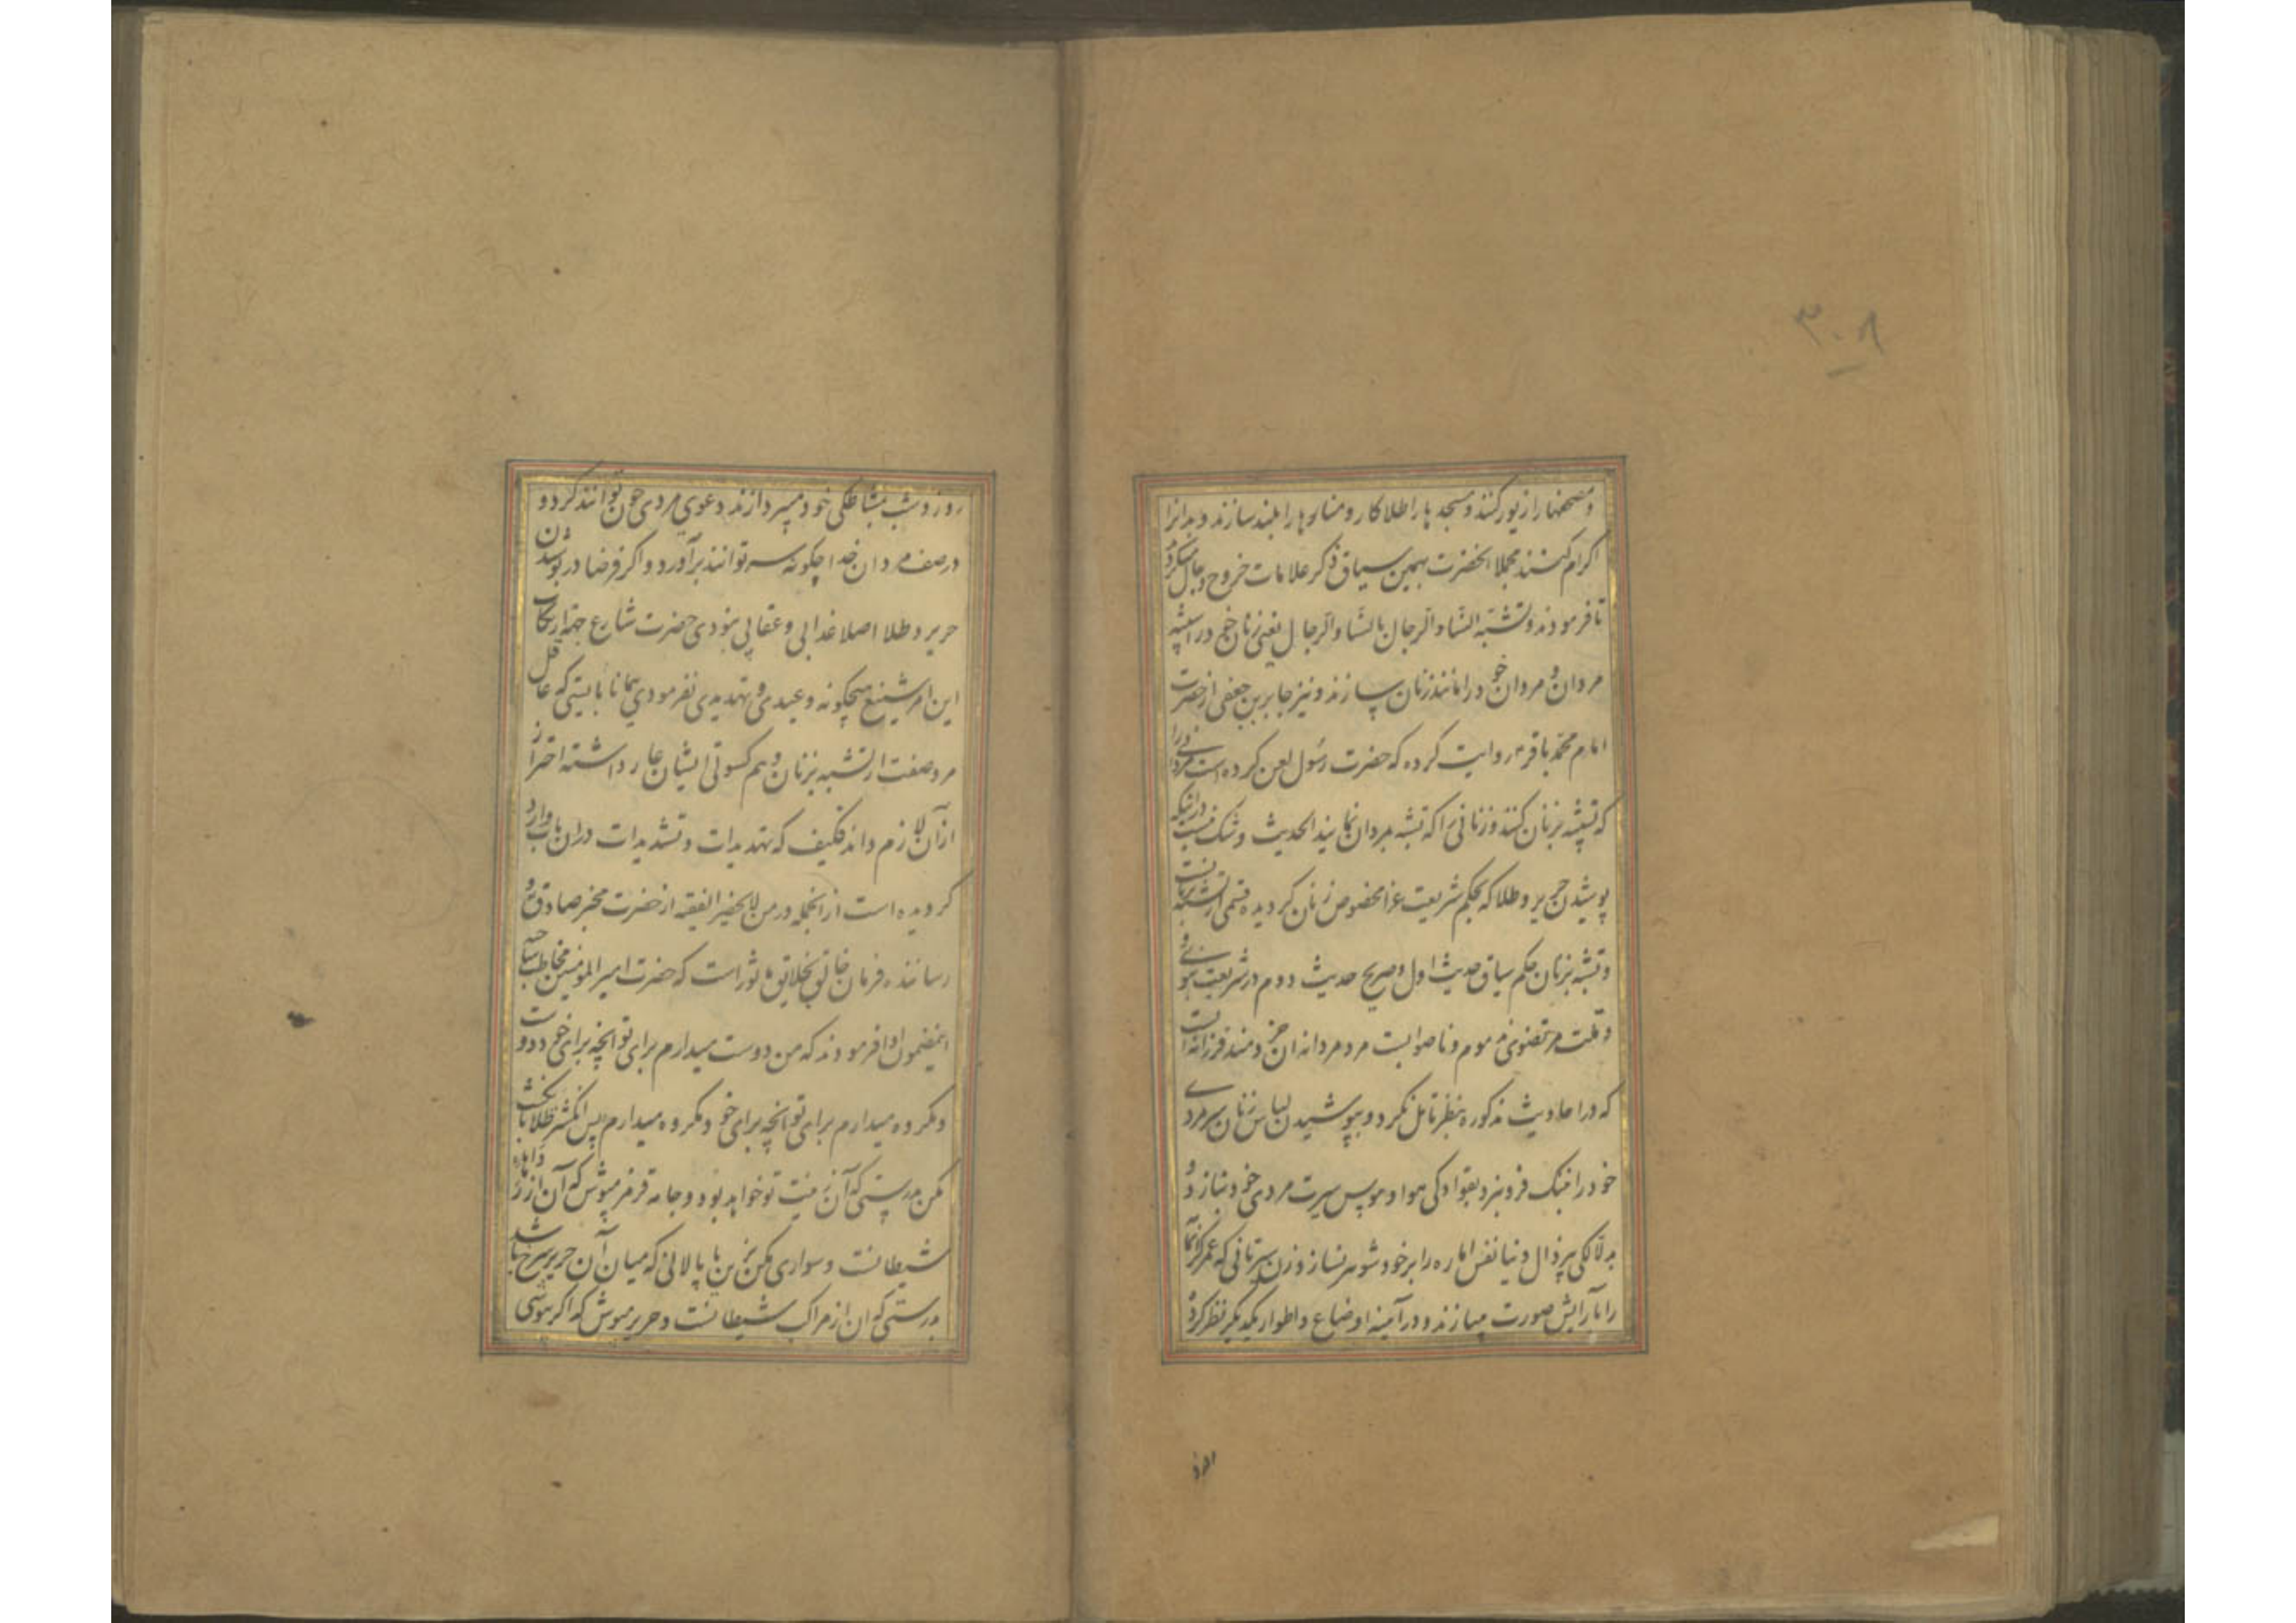 ۳۰۸
و مصحفها را زیور کنند و مسجدها را طلا کار و منارها را بلند سازند و بدانرا
اکرام کنند مجملا انحضرت بهمین سیاق ذکر علامات خروج دجال میکرد
تا فرمودند و تشبه النساء و الرجال بالنساء و الرجال یعنی زنان خود را شبیه
مردان و مردان خود را مانند زنان سازند و نیز جابر بن جعفی از حضرت
امام محمد باقر روایت کرده که حضرت رسول لعن کرده است مردانی را
که تشبه بزنان کنند و زنانی را که تشبه بمردان نمایند الحدیث و شک نیست در اینکه
پوشیدن حریر و طلا که بحکم شریعت غرا مخصوص زنان کردیده قسمی از تشبه بزنانست
و تشبه بزنان بحکم سیاق حدیث اول و صریح حدیث دوم در شریعت نبوی
و ملت مرتضوی مذموم و ناصوابست مرد مردانه ان خردمند فرزانه است
که در احادیث مذکوره بنظر تامل نکرد و بپوشیدن لباس زنان سر مردی
خود را بننک فرو نبرد و بقوادکی هوا و هوس سیرت مردی خود نبازد و
بدلالکی پیر زال دنیا نفس اماره را بر خود شوهر نسازد زن سیرتانی که عمر کرانمایه
را بآرایش صورت میبازند و در آئینه اوضاع و اطوار یکدیکر نظر کرده
روز و شب بمشاطکی خود میپردازند دعوی مردی چون توانند کرد و
در صف مردان خدا چکونه سر توانند برآورد و اکر فرضا در پوشیدن
حریر و طلا اصلا عذابی و عقابی نبودی حضرت شارع جهة ارتکاب
این امر شنیع هیچکونه وعیدی و تهدیدی نفرمودی همانا بایستی که عاقل
مرد صفت از تشبه بزنان و هم کسوتی ایشان عار داشته احتراز
از آن لازم داند فکیف که تهدیدات و تشدیدات در ان باب وارد
کردیده است از انجمله در من لا یحضر الفقیه از حضرت مخبر صادق و
رساننده فرمان خالق بخلایق ماثور است که حضرت امیر المؤمنین مخاطب ساخته
بمضمون ادا فرمودند که من دوست میدارم برای تو انچه برای خود دوست
و مکروه میدارم برای تو انچه برای خود مکروه میدارم پس انکشتر طلا بانکشت
مکن بدرستی که آن زینت تو خواهد بود و جامه قرمز مپوش که آن از رداهای
شیطانست و سواری مکن بزین یا پالانی که میان آن حریر سرخ باشد
بدرستی که ان از مراکب شیطانست و حریر مپوش که اکر بپوشی